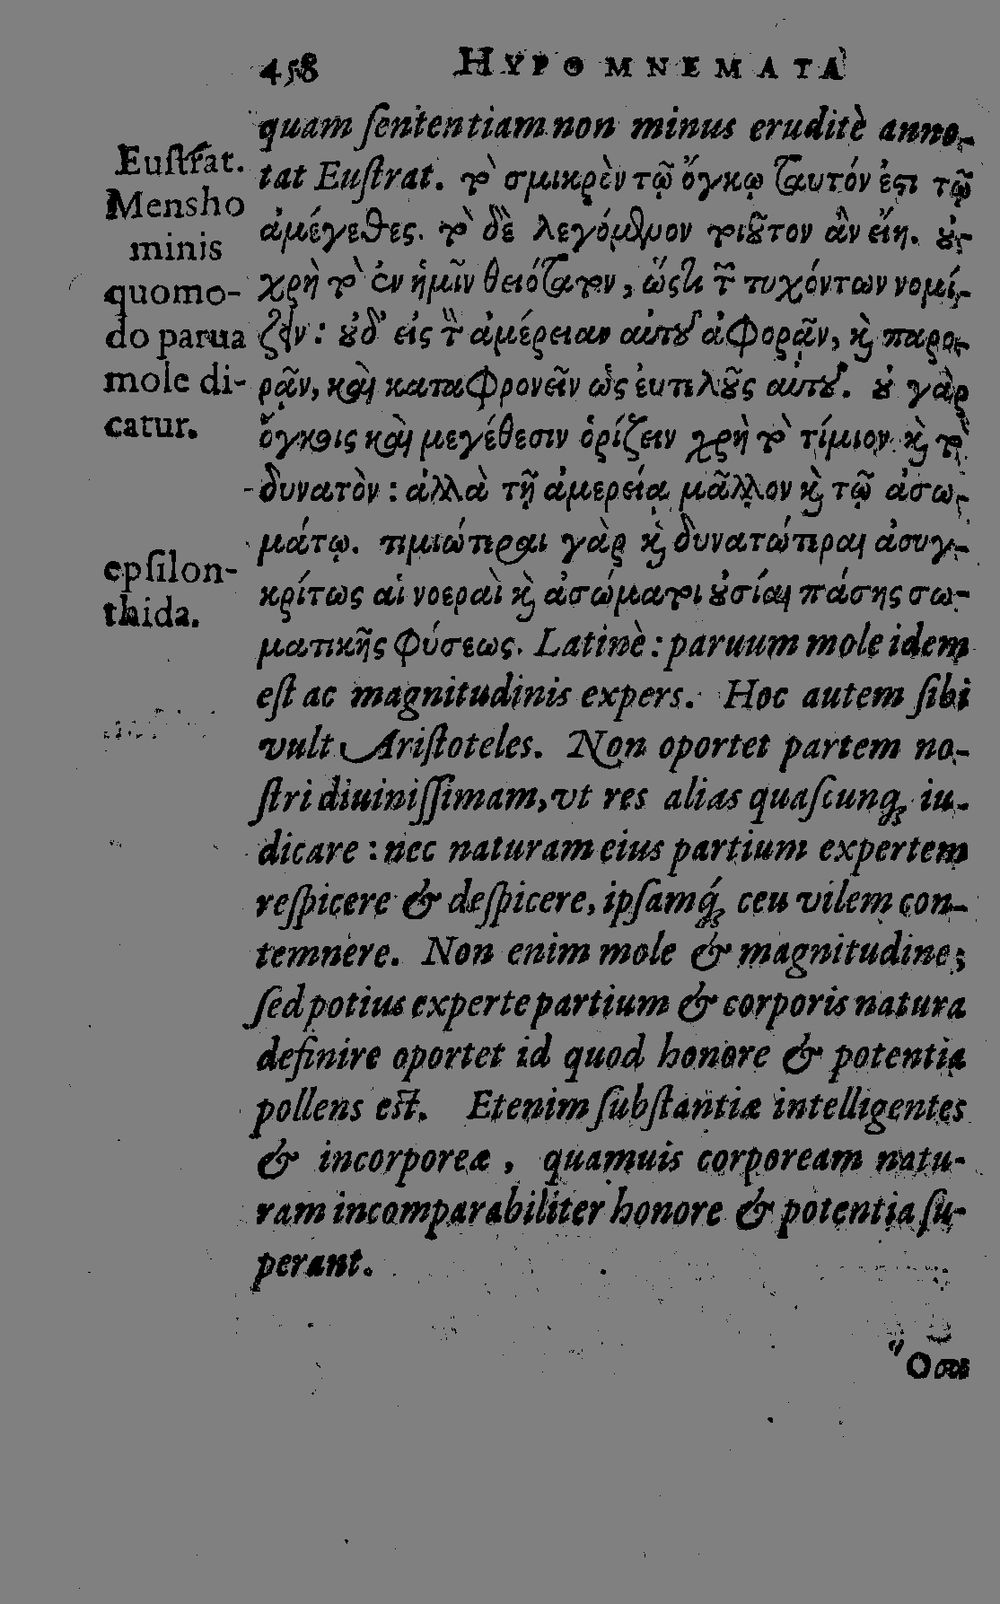 458 HYPOMNEMATA
quam ſententiam non minus eruditè anno-
tat Euſtrat. τὸ σμικρὸν τῷ ὄγκῳ ταυτόν ἐστι τῷ
ἀμέγεθες. τὸ δὲ λεγόμενον τοιοῦτον ἂν εἴη. οὐ
χρὴ τὸ ἐν ἡμῖν θειότατον, ὥστε τῶν τυχόντων νομί-
ζειν: οὐδ' εἰς τὴν ἀμέρειαν αὐτοῦ ἀφορᾷν, καὶ παρο-
ρᾷν, καὶ καταφρονεῖν ὡς εὐτελοῦς αὐτοῦ. οὐ γὰρ
ὄγκοις καὶ μεγέθεσιν ὁρίζειν χρὴ τὸ τίμιον καὶ τὸ
δυνατὸν: ἀλλὰ τῇ ἀμερείᾳ μᾶλλον καὶ τῷ ἀσω-
μάτῳ. τιμιώτεραι γὰρ καὶ δυνατώτεραι ἀσυγ-
κρίτως αἱ νοεραὶ καὶ ἀσώματοι οὐσίαι πάσης σω-
ματικῆς φύσεως. Latinè: paruum mole idem
eſt ac magnitudinis expers. Hoc autem ſibi
vult Ariſtoteles. Non oportet partem no-
ſtri diuiniſſimam, vt res alias quaſcunq; iu-
dicare: nec naturam eius partium expertem
reſpicere & deſpicere, ipſamq́; ceu vilem con-
temnere. Non enim mole & magnitudine;
ſed potius experte partium & corporis natura
definire oportet id quod honore & potentia
pollens eſt. Etenim ſubſtantiæ intelligentes
& incorporeæ, quamuis corpoream natu-
ram incomparabiliter honore & potentia ſu-
perant.
Ὅσοι
Euſtrat.
Mens ho
minis
quomo-
do parua
mole di-
catur.
epſilon-
thida.